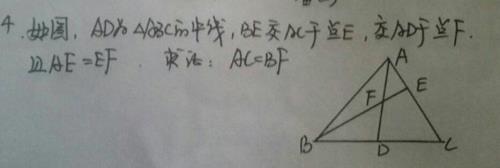 4.如图,AD为△ABC的中线,BE交AC于点E,交AD于点F.
且AE=EF.求证:AC=BF
A
E
F
B
D
C